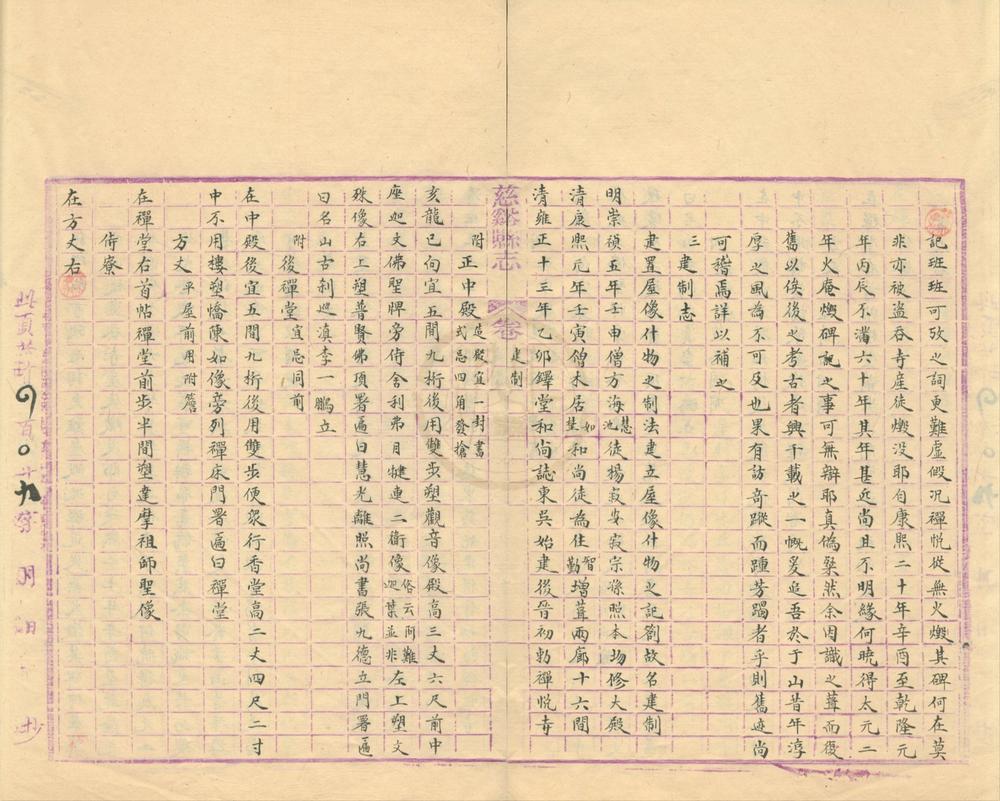 記班班可攷之詞更難虛假况禪悅從無火燬其碑何在莫
非亦被盜吞寺產徒燬沒耶自康熙二十年辛酉至乾隆元
年丙辰不滿六十年其年甚近尚且不明緣何曉得太元二
年火庵燬碑記之事可無辯耶真僞粲然余因識之葺而復
舊以俟後之考古者興千載之一慨爰追吾於于山昔年淳
厚之風論不可及也果有訪奇蹤而踵芳躅者乎則舊迹尚
可稽焉詳以補之
三建制志
建置屋像什物之制法建立屋像什物之記劄故名建制
明崇禎五年壬申僧方海慧池徒楊寂安寂宗孫照本物修大殿
清康熙元年壬寅僧木居如埜和尚徒為住智勤增葺兩廊十六間
清雍正十三年乙卯鐸堂和尚誌東吳始建後晉初勅禪悅寺
慈谿縣志 卷 建制
附正中殿造殿宜一封書式忌四角發搶
亥龍巳向宜五間九桁後用雙步塑觀音像殿高三丈六尺前中
座迦文佛聖牌旁侍舍利弗目犍連二衛像俗云阿難迦葉並非左上塑文
殊像右上塑普賢佛項署匾曰慧光離照尚書張九德立門署匾
曰名山古刹巡滇李一鵬立
附後禪堂宜忌同前
在中殿後宜五間九桁後用雙步便衆行香堂高二丈四尺二寸
中不用樓塑憍陳如像旁列禪床門署匾曰禪堂
方丈平屋前用附簷
在禪堂右首帖禪堂前步半間塑達摩祖師聖像
侍寮
在方丈右